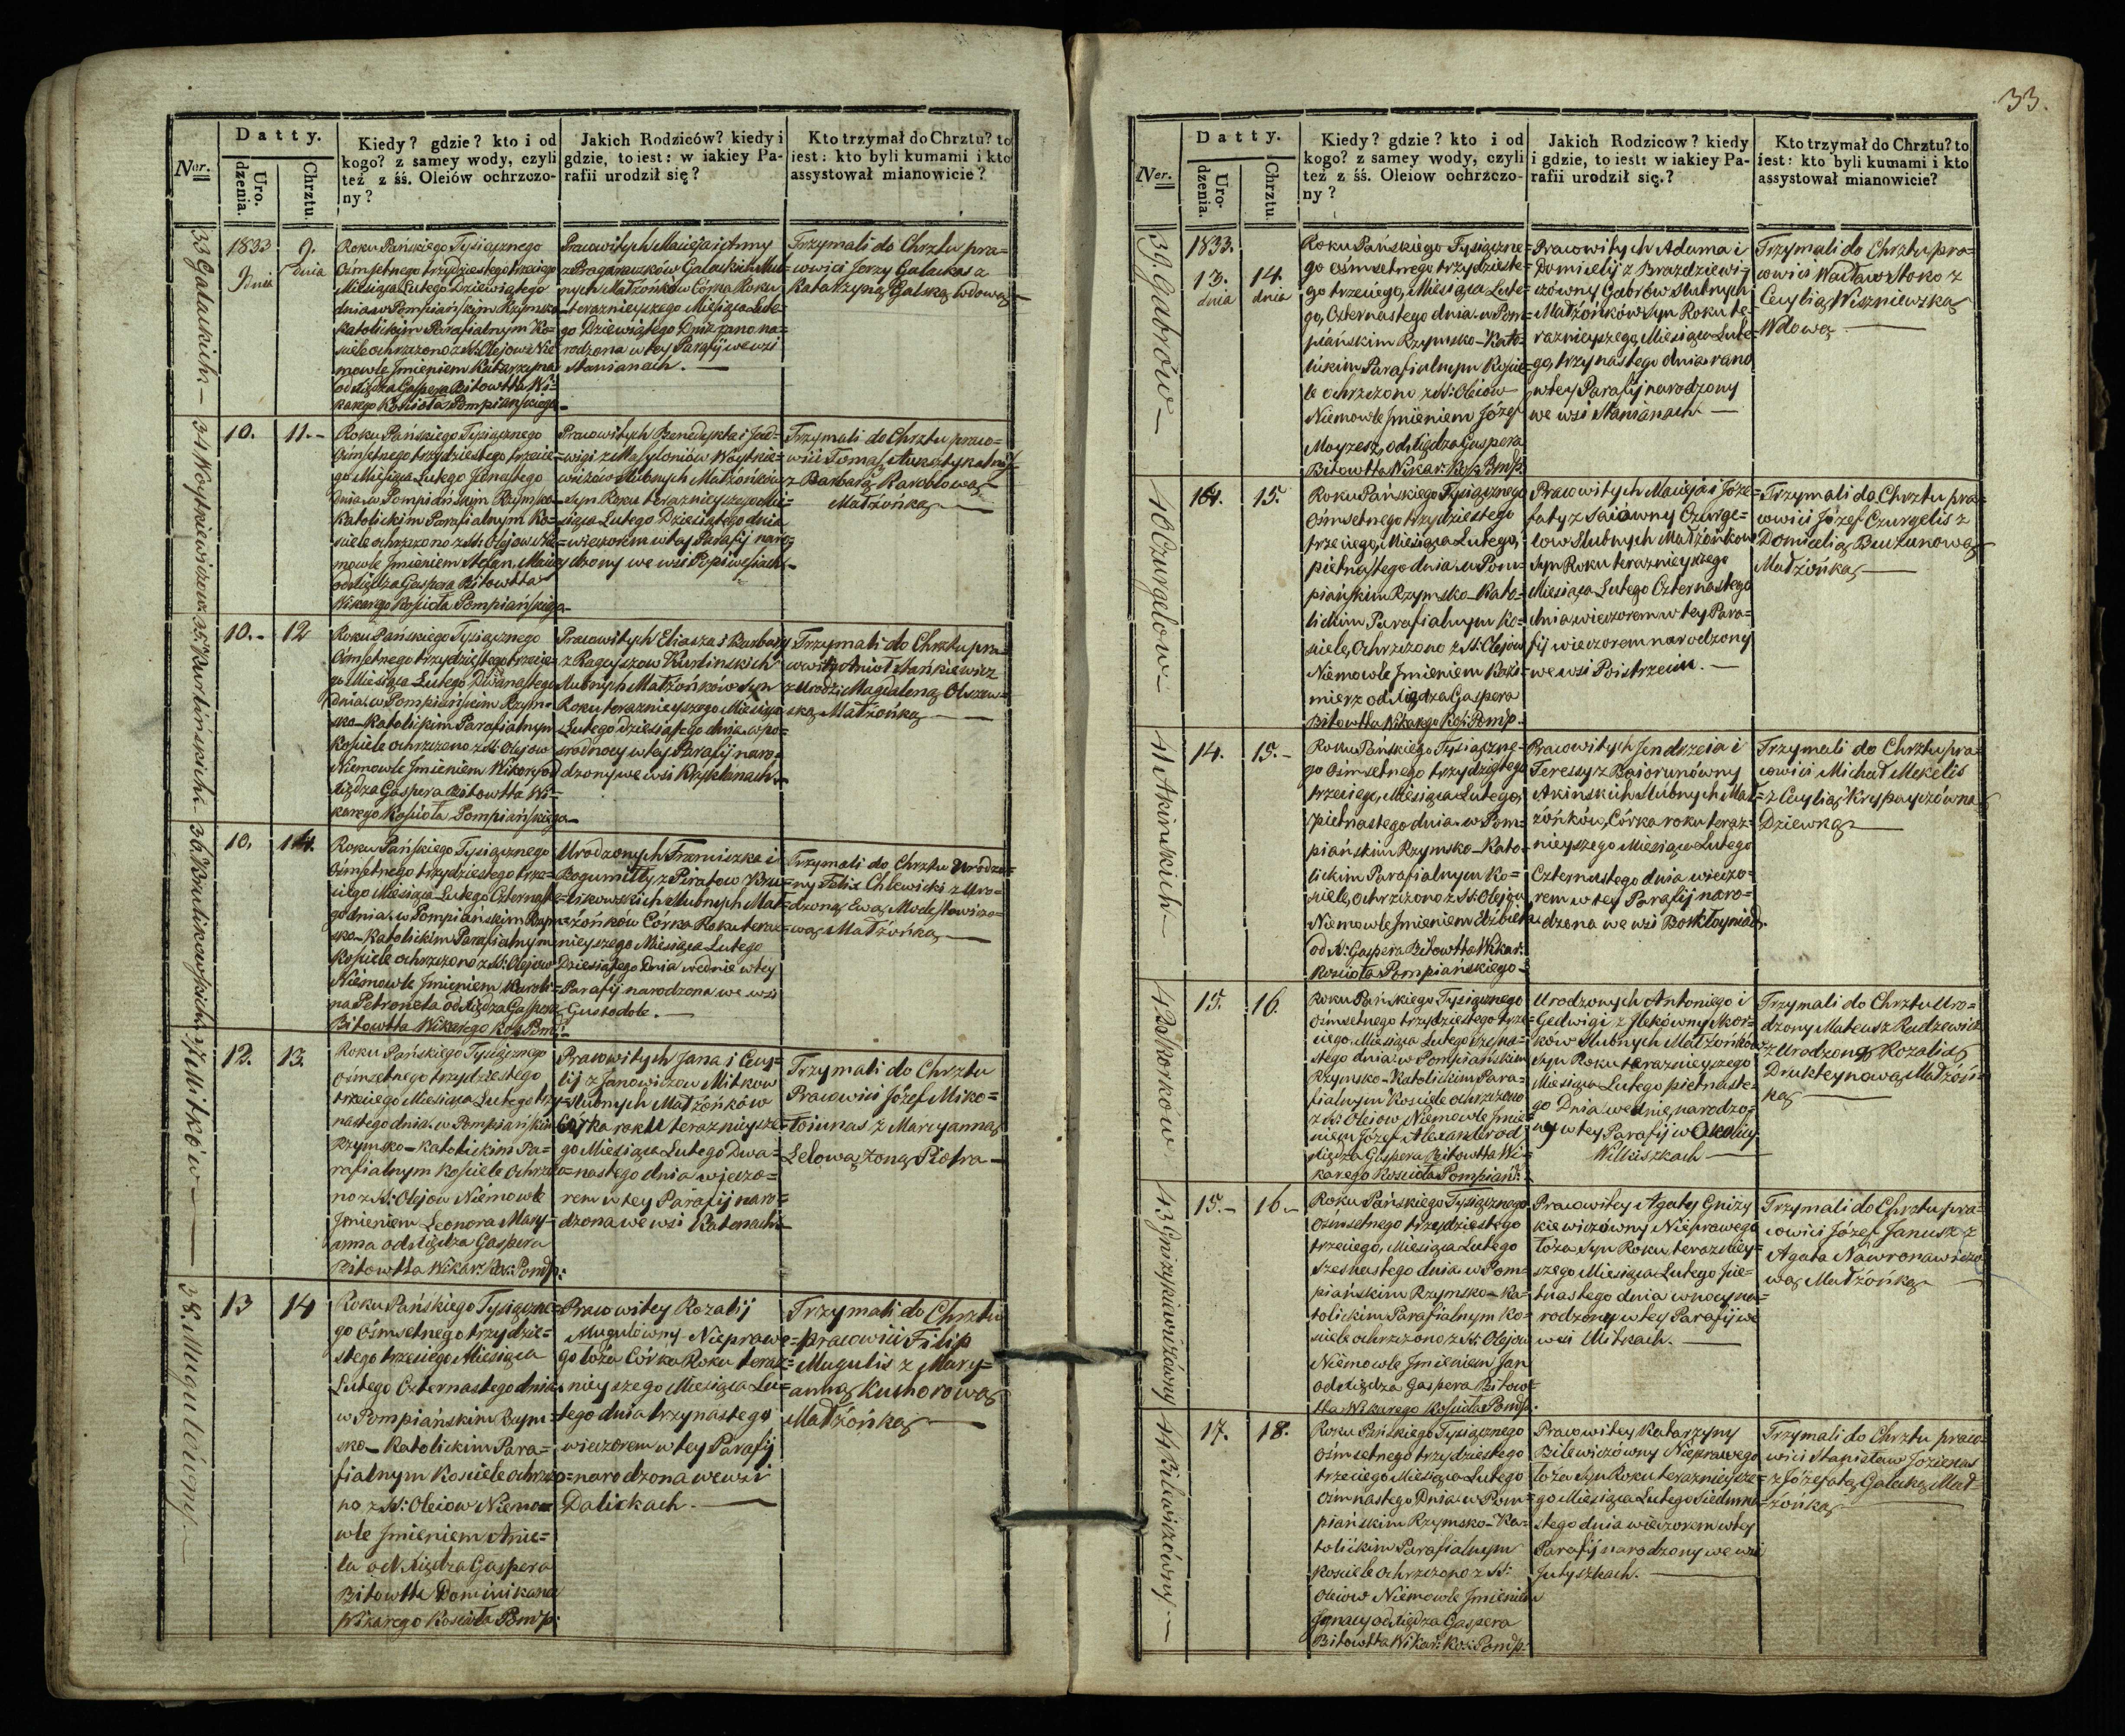 33.
Datty.
Ner.
Uro-
dzenia.
Chrztu.
Kiedy? gdzie? kto i od
kogo? z samey wody, czyli
też z śś. Oleiów ochrzczo-
ny?
Jakich Rodziców? kiedy i
gdzie, to iest: w iakiey Pa-
rafii urodził się?
Kto trzymał do Chrztu? to
iest: kto byli kumami i kto
assystował mianowicie?
33 Gałackich
1833
9 dnia
9.
dnia
Roku Pańskiego Tysiącznego
Ośmsetnego trzydziestego trzeciego
Miesiąca Lutego Dziewiątego
dnia w Pompiańskim Rzymsko
Katolickim Parafialnym Ko=
ściele ochrzczono z SS: Olejow Nie
mowle Jmieniem Katarzyna
od Xiędza Gaspera Bitowtta Wi=
karego Kościoła Pompiańskiego
Pracowitych Macieja i Anny
Gałackich Ślu=
bnych Małżonków Córka Roku
teraznieyszego Miesiąca Lute=
go Dziewiątego Dnia rano na=
rodzona w tey Parafij we wsi
Stanianach.
Trzymali do Chrztu pra=
cowici Jerzy Gałackas z
Katarzyną Galską wdową
34 Woytkiewiczow
10.
11.
Roku Pańskiego Tysiącznego
Ośmsetnego trzydziestego trzecie=
go Miesiąca Lutego Jedenastego
dnia w Pompiańskim Rzymsko
Katolickim Parafialnym Ko=
ściele ochrzczono z SS: Olejow Nie=
mowle Jmieniem Stefan Maciej
od Xiędza Gaspera Bitowtta
Wikarego Kościoła Pompiańskiego
Pracowitych Benedykta i Jad=
wigi z Woytkie=
wiczów Ślubnych Małżonków
Syn Roku teraznieyszego Mie=
siąca Lutego Dziesiątego dnia
wieczorem w tey Parafij naro=
dzony we wsi Popiwesiach
Trzymali do Chrztu praco=
wici Tomasz
z Barbarą Karoblową
Małżonką
35 Kurlińskich
10.
12
Roku Pańskiego Tysiącznego
Ośmsetnego trzydziestego trzecie=
go Miesiąca Lutego Dwónastego
dnia w Pompiańskim Rzym=
sko-Katolickim Parafialnym
Kościele ochrzczono z SS: Olejow
Niemowle Jmieniem Wikory od
Xiędza Gaspera Bitowtta Wi=
karego Kościoła Pompiańskiego
Pracowitych Eliasza i Barbary
z Ragyszow Kurlinskich
Ślubnych Małżonków Syn
Roku teraznieyszego Miesiąca
Lutego dziesiątego dnia w po=
srodnocy w tey Parafij naro=
dzony we wsi Krysklanach
Trzymali do Chrztu pra=
cowity Anioł Stańkiewicz
z Urodz: Magdaleną Olszew=
ską Małżonką
36 Brulikowskich
10.
14.
Roku Pańskiego Tysiącznego
Ośmsetnego trzydziestego trze=
ciego Miesiąca Lutego Czternaste=
go dnia w Pompianskim Rzym=
sko-Katolickim Parafialnym
Kościele ochrzczono z SS: Olejow
Niemowle Jmieniem Karoli=
na Petronela od Xiędza Gaspera
Bitowtta Wikarego Koś: Pomp:
Urodzonych Franciszka i
Bogumiłły z Piratow Bru=
likowskich Ślubnych Mał=
żonków Córka Roku teraz=
nieyszego Miesiąca Lutego
Dziesiątego Dnia wednie w tey
Parafij narodzona we wsi
Gustodole.
Trzymali do Chrztu Urodzo=
ny Felix Chlewicki z Uro=
dzoną Ewą Modestowiczo=
wą Małżonką
37 Mitków
12.
13.
Roku Pańskiego Tysiącznego
Ośmsetnego trzydziestego
trzeciego Miesiąca Lutego trzy=
nastego dnia w Pompiańskim
Rzymsko-Katolickim Pa=
rafialnym Kościele Ochrzczo=
no z SS: Olejow Niemowle
Jmieniem Leonora Mary=
anna od Xiędza Gaspera
Bitowtta Wikar: Koś: Pomp:
Pracowitych Jana i Cecy=
lij z Janowiczow Mitkow
Ślubnych Małżonków
Córka roku teraznieysze=
go Miesiąca Lutego Dwa=
nastego dnia wieczo=
rem w tey Parafij naro=
dzona we wsi Katenach
Trzymali do Chrztu
Pracowici Józef Miko=
łoiunas z Maryanną
Lelową żoną Piotra
38. Mugulówny.
13
14
Roku Pańskiego Tysiączne=
go Ośmsetnego trzydzie=
stego trzeciego Miesiąca
Lutego Czternastego dnia
w Pompiańskim Rzym=
sko-Katolickim Para=
fialnym Kościele ochrzczo=
no z SS: Oleiow Niemo=
wle Jmieniem Anie=
la od Xiędza Gaspera
Bitowtta Dominikana
Wikarego Kościoła Pomp:
Pracowitey Rozalij
Mugulówny Nieprawe=
go łoża Córka Roku teraz=
nieyszego Miesiąca Lu=
tego dnia trzynastego
wieczorem w tey Parafij
narodzona we wsi
Dalickach.
Trzymali do Chrztu
pracowici Filip
Mugulis z Mary=
anną Kuchorową
Małżonką
Datty.
Ner.
Uro-
dzenia.
Chrztu.
Kiedy? gdzie? kto i od
kogo? z samey wody, czyli
też z śś. Oleiow ochrzczo-
ny?
Jakich Rodziców? kiedy
i gdzie, to iest: w iakiey Pa-
rafii urodził się.?
Kto trzymał do Chrztu? to
iest: kto byli kumami i kto
assystował mianowicie?
39 Gabrów
1833.
13.
dnia
14.
dnia
Roku Pańskiego Tysiączne=
go ośmsetnego trzydzieste=
go trzeciego, Miesiąca Lute=
go, Czternastego dnia w Pom=
piańskim Rzymsko-Kato=
lickim Parafialnym Koście=
le ochrzczono z SS: Oleiow
Niemowle Jmieniem Józef
Moyzesz, od Xiędza Gaspera
Bitowtta Wikar: Koś: Pomp:
Pracowitych Adama i
Domicelij z Brazdziewi=
czówny Gabrów Ślubnych
Małżonków Syn Roku te=
raznieyszego, Miesiąca Lute=
go, trzynastego dnia rano
w tey Parafij narodzony
we wsi Stanianach
Trzymali do Chrztu pra=
cowici Wacław Stoko z
Cecylią Wiszniewską
Wdową
40 Czurgelow
14.
15.
Roku Pańskiego Tysiącznego
Ośmsetnego trzydziestego
trzeciego, Miesiąca Lutego,
pietnastego dnia w Pom=
piańskim Rzymsko-Kato=
lickim Parafialnym Ko=
ściele, Ochrzczono z SS: Olejow
Niemowle Jmieniem Kazi=
mierz od Xiędza Gaspera
Bitowtta Wikarego Koś: Pomp.
Pracowitych Macieja i Józe=
faty z Saiówny Czurge=
low Ślubnych Małżonkow
Syn Roku teraznieyszego
Miesiąca Lutego Czternastego
dnia wieczorem w tey Para=
fij wieczorem narodzony
we wsi Poistrzeciu.
Trzymali do Chrztu pra=
cowici Józef Czurgelis z
Domicelią Buczunową
Małżonką
41 Akinskich
14.
15.
Roku Pańskiego Tysiączne=
go Ośmsetnego trzydziestego
trzeciego, Miesiąca Lutego,
pietnastego dnia w Pom=
piańskim Rzymsko-Kato=
lickim Parafialnym Ko=
ściele, Ochrzczono z SS: Olejow
Niemowle Jmieniem Elżbieta
od X: Gaspera Bitowtta Wikar:
Kościoła Pompiańskiego
Pracowitych Jendrzeia i
Teressy z Bajorunówny
Akińskich Ślubnych Mał=
żónków, Córka roku teraz=
nieyszego Miesiąca Lutego
Czternastego dnia wieczo=
rem w tey Parafij naro=
dzona we wsi
Trzymali do Chrztu pra=
cowici Michał Mekelis
z Cecylią
Dziewką
42 Skorków
15.
16.
Roku Pańskiego Tysiącznego
Ośmsetnego trzydziestego trze=
ciego, Miesiąca Lutego Szesna=
stego dnia w Pompiańskim
Rzymsko-Katolickim Para=
fialnym Kościele ochrzczono
z SS: Olejow Niemowle Jmie=
niem Józef Alexander od
Xiędza Gaspera Bitowtta Wi=
karego Kościoła Pompiań:
Urodzonych Antoniego i
Gedwigi z Skor=
kow Ślubnych Małżonkow
Syn Roku teraznieyszego
Miesiąca Lutego pietnaste=
go Dnia wednie, narodzo=
ny w tey Parafij w Okolicy
Wilkiszkach
Trzymali do Chrztu Uro=
dzony Mateusz Rudzewicz
z Urodzoną Rozalią
Drukteynową Małżon=
ką
15.
16
Roku Pańskiego Tysiącznego
Ośmsetnego trzydziestego
trzeciego, Miesiąca Lutego
Szesnastego dnia w Pom=
piańskim Rzymsko-Ka=
tolickim Parafialnym Ko=
ściele ochrzczono z SS: Olejow
Niemowle Jmieniem Jan
od Xiędza Gaspera Bitow=
tta Wikarego Kościoła Pomp.
Pracowitey Agaty Gniży
kiewiczówny Nieprawego
łoża Syn Roku teraźniey=
szego Miesiąca Lutego Pie=
tnastego dnia w nocy na=
rodzony w tey Parafij we
wsi Mitkach.
Trzymali do Chrztu pra=
cowici Józef Janusz z
Agatą Nawronawiczo
wą Małżonką
44 Bilewiczówny
17.
18.
Roku Pańskiego Tysiącznego
Ośmsetnego trzydziestego
trzeciego Miesiąca Lutego
Ośmnastego Dnia w Pom=
piańskim Rzymsko-Ka=
tolickim Parafialnym
Kościele Ochrzczono z SS:
Oleiow Niemowle Jmieniem
Jgnacy od Xiędza Gaspera
Bitowtta Wikar: Koś: Pomp:
Pracowitey Katarzyny
Bilewiczówny Nieprawego
łoża Syn Roku teraznieysze=
go Miesiąca Lutego Siedmna=
stego dnia wieczorem w tey
Parafij narodzony we wsi
Jutyszkach.
Trzymali do Chrztu praco=
wici Stanisław Jozienas
z Józefatą Gałecką Mał=
żonką